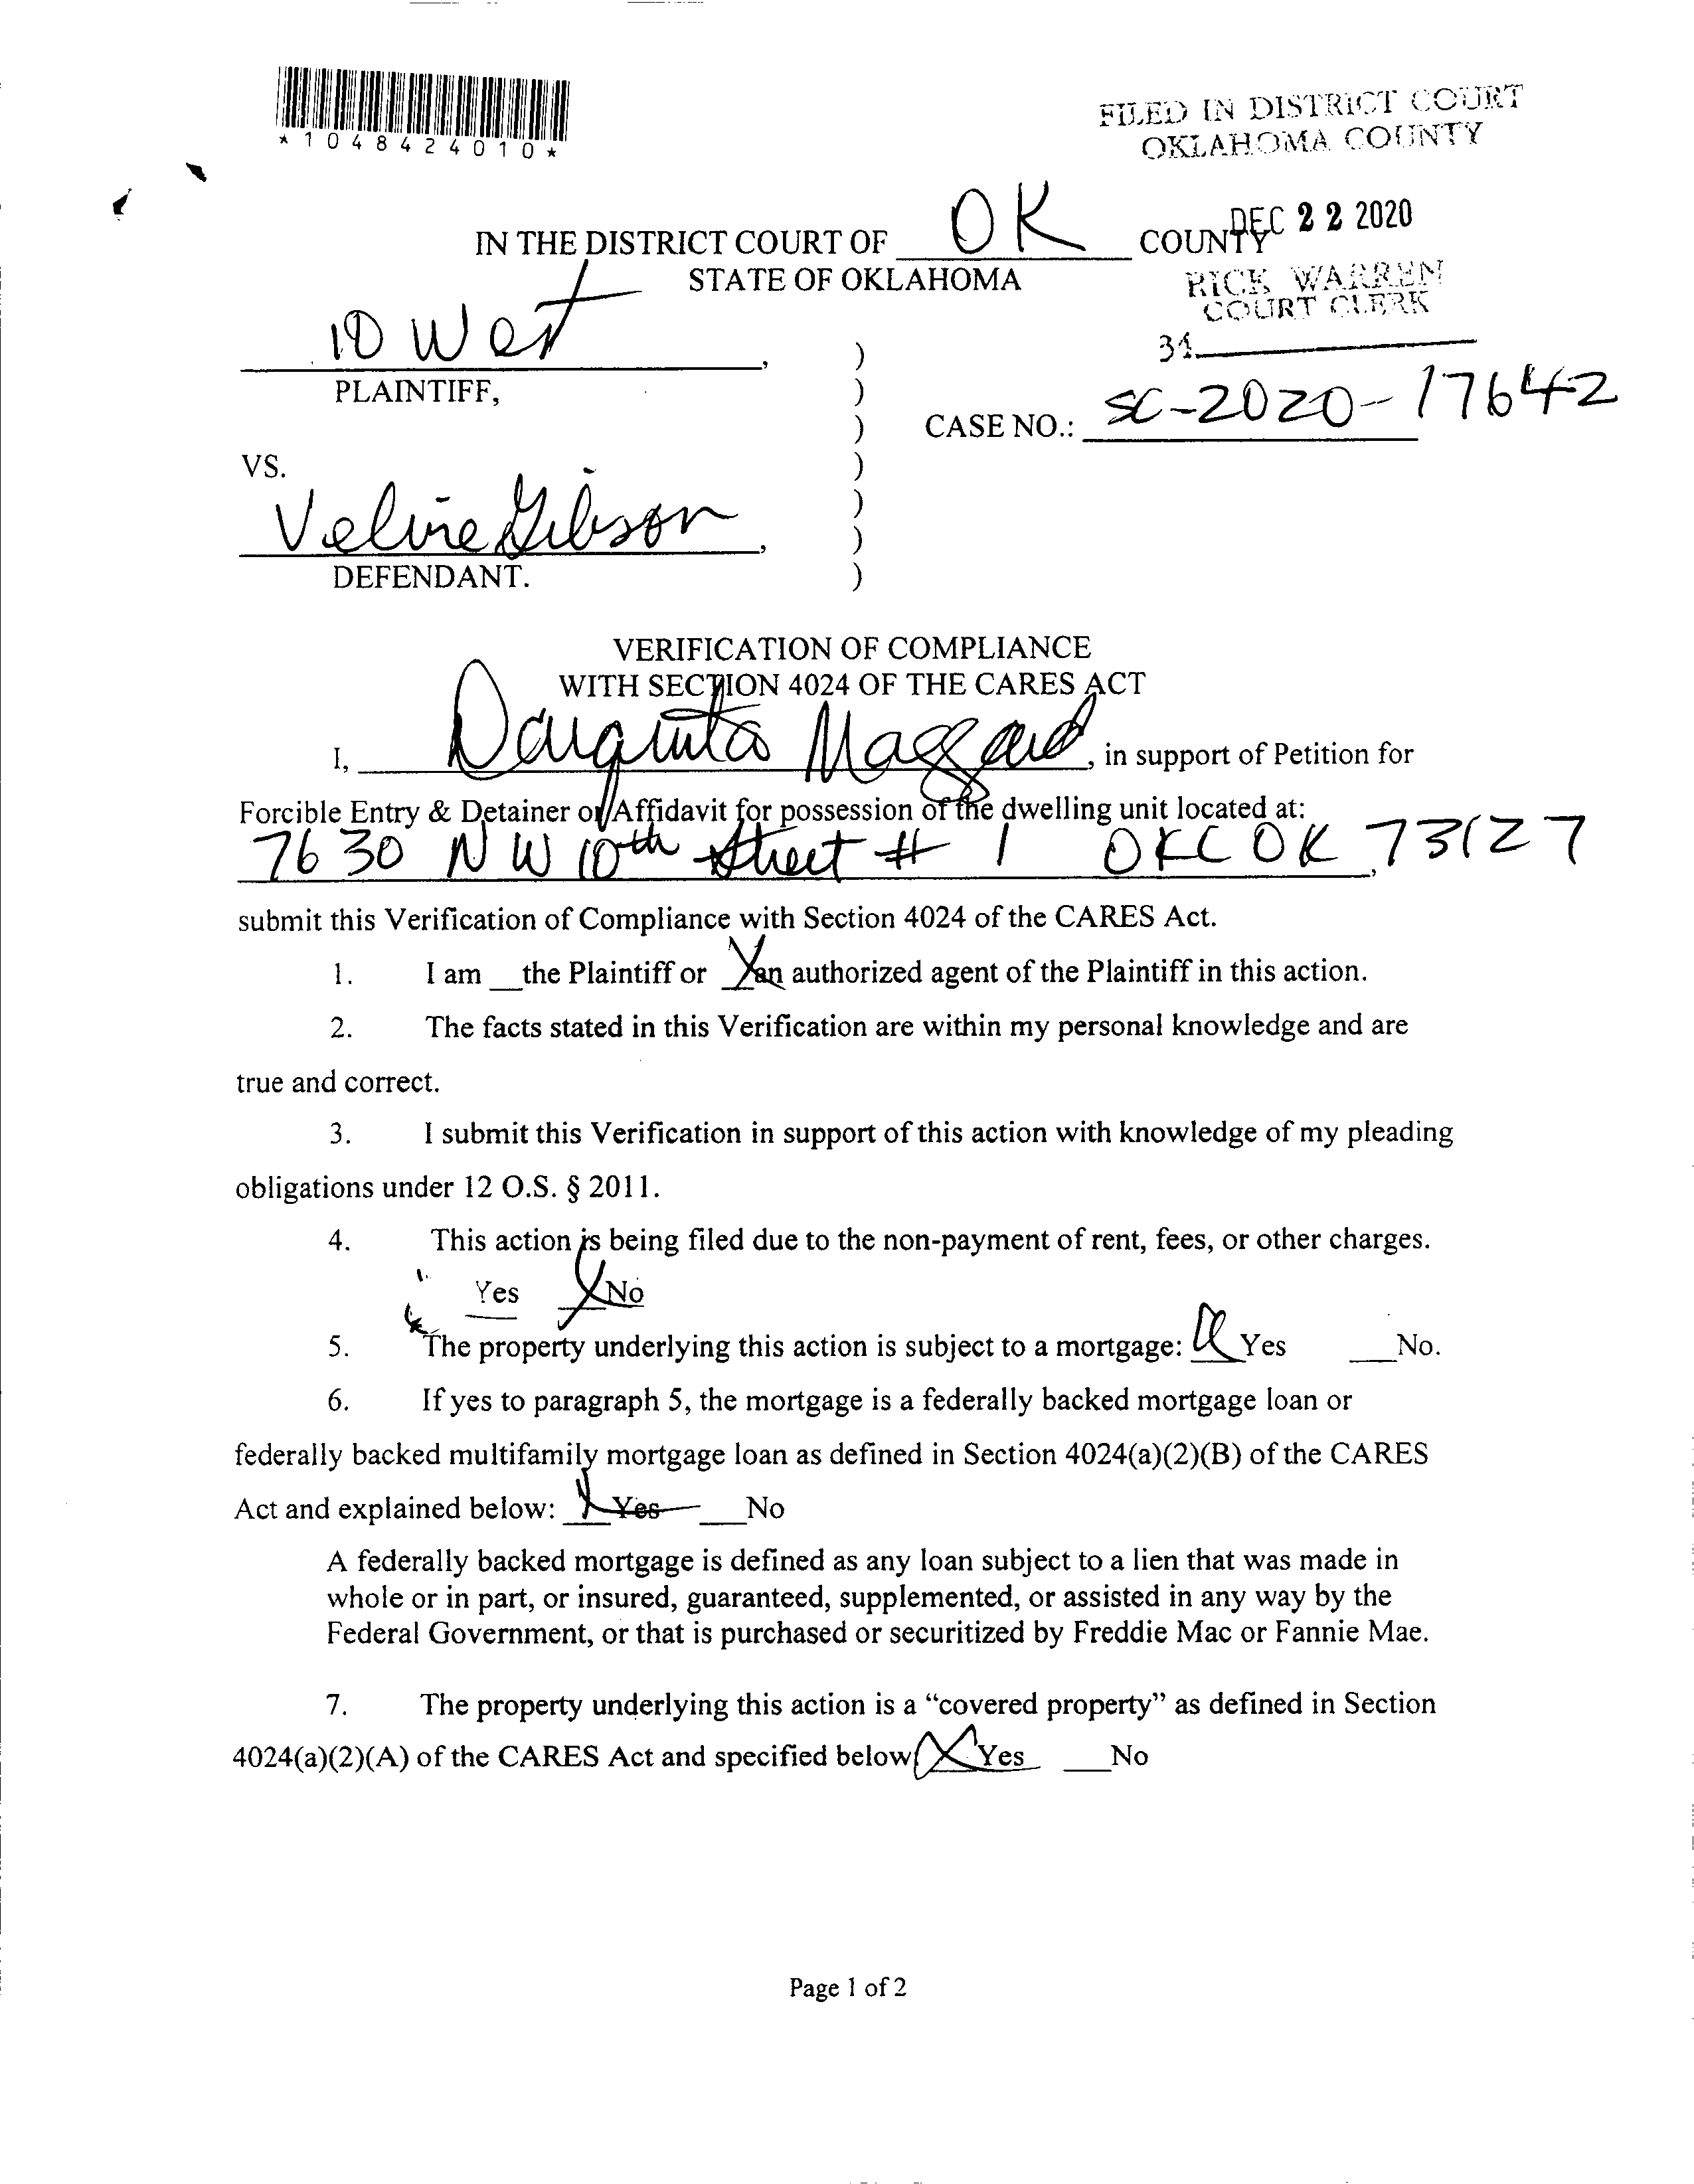 *1048424010*
FILED IN DISTRICT COURT
OKLAHOMA COUNTY
DEC 22 2020
IN THE DISTRICT COURT OF OK COUNTY
STATE OF OKLAHOMA
RICK WARREN
COURT CLERK
10 West,
PLAINTIFF,
CASE NO.: SC-2020-17642
VS.
Gibson,
DEFENDANT.
)
)
)
)
)
)
)
VERIFICATION OF COMPLIANCE
WITH SECTION 4024 OF THE CARES ACT
I, Maggard, in support of Petition for
Forcible Entry & Detainer or Affidavit for possession of the dwelling unit located at:
7630 NW 10th Street # 1 OKC OK 73127,
submit this Verification of Compliance with Section 4024 of the CARES Act.
1. I am __the Plaintiff or X an authorized agent of the Plaintiff in this action.
2. The facts stated in this Verification are within my personal knowledge and are
true and correct.
3. I submit this Verification in support of this action with knowledge of my pleading
obligations under 12 O.S. § 2011.
4. This action is being filed due to the non-payment of rent, fees, or other charges.
Yes X No
5. The property underlying this action is subject to a mortgage: Yes ___No.
6. If yes to paragraph 5, the mortgage is a federally backed mortgage loan or
federally backed multifamily mortgage loan as defined in Section 4024(a)(2)(B) of the CARES
Act and explained below: X Yes ___No
A federally backed mortgage is defined as any loan subject to a lien that was made in
whole or in part, or insured, guaranteed, supplemented, or assisted in any way by the
Federal Government, or that is purchased or securitized by Freddie Mac or Fannie Mae.
7. The property underlying this action is a “covered property” as defined in Section
4024(a)(2)(A) of the CARES Act and specified below X Yes ___No
Page 1 of 2